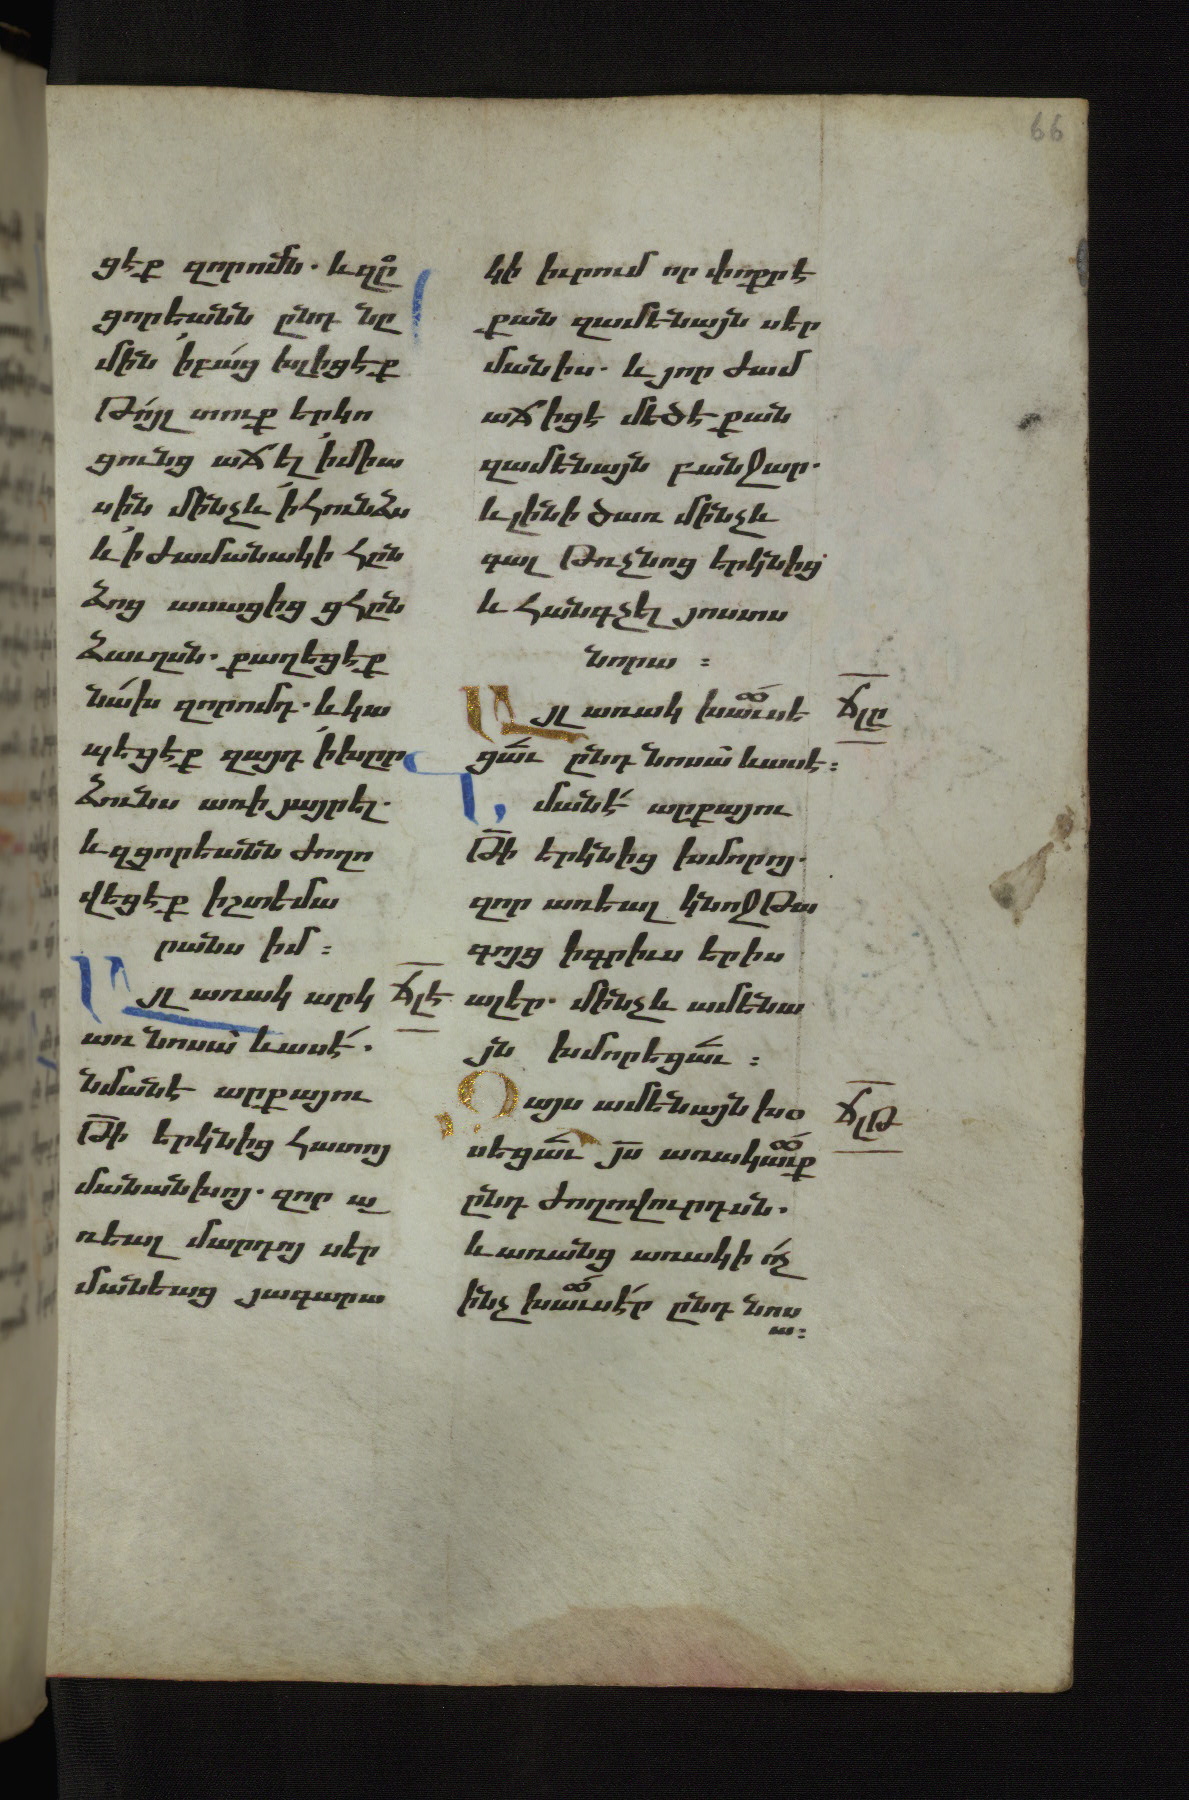 66
ցէք զորոմն. և զը
ցորեանն ընդ նը
մին ՛ի բաց խլիցէք
Թոյլ տուք երկո
ցունց աճել ՛ի միա
սին մինչև ՛ի հունձս
և ՛ի ժամանակի հըն
ձոց ասացից ցհըն
ձաւղսն. քաղեցէք
նախ զորոմդ. և կա
պեցէք զայդ ՛ի խըր
ձունս առ ի յայրել.
և զցորեանն ժողո
վեցէք ի շտեմա
րանս իմ :
Այլ առակ արկ
ՃԼԷ
առ նոսա և ասէ.
նմանէ արքայու
Թի երկնից հատոյ
մանանխոյ. զոր ա
ռեալ մարդոյ սեր
մանեաց յագարա
կի իւրում որ փոքր է
քան զամենայն սեր
մանիս. և յոր ժամ
աճիցէ մեծ է քան
զամենայն բանջար.
և լինի ծառ մինչև
գալ Թռչնոց երկնից
և հանգչել յոստս
նորա :
Այլ առակ խաւսե
ՃԼԸ
ցաւ ընդ նոսա և ասէ :
Նմանէ արքայու
Թի երկնից խմորոյ.
զոր առեալ կնոջ Թա
գոյց ի գրիւս երիս
ալեր. մինչև ամենա
յն խմորեցաւ :
Զայս ամենայն խօ
ՃԼԹ
սեցաւ յս առակաւք
ընդ ժողովուրդսն.
և առանց առակի ոչ
ինչ խաւսէր ընդ նոս
ա :